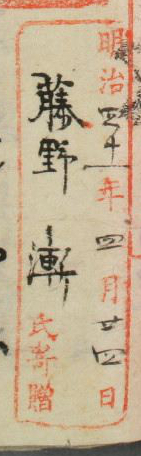 明治四十一年四月廿四日
藤野漸
氏寄贈